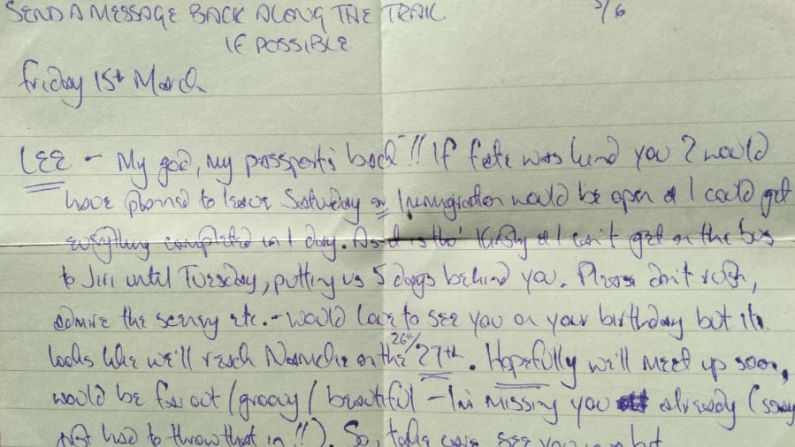 SEND A MESSAGE BACK ALONG THE TRAIL 5/6
IF POSSIBLE
Friday 15th March
LEE - My god, my passport's back!! If fate was kind you & would
have planned to leave Saturday or Immigration would be open & I could get
everything completed in 1 day. As it is tho' Kirsty & I can't get on the bus
to Jiri until Tuesday, putting us 5 days behind you. Please don't rush,
admire the scenery etc. - would love to see you on your birthday but it
looks like we'll reach Namche on the 26th/27th. Hopefully we'll meet up soon,
would be far out/groovy/beautiful - I'm missing you already (sorry
just had to throw that in!!). So, take care, see you